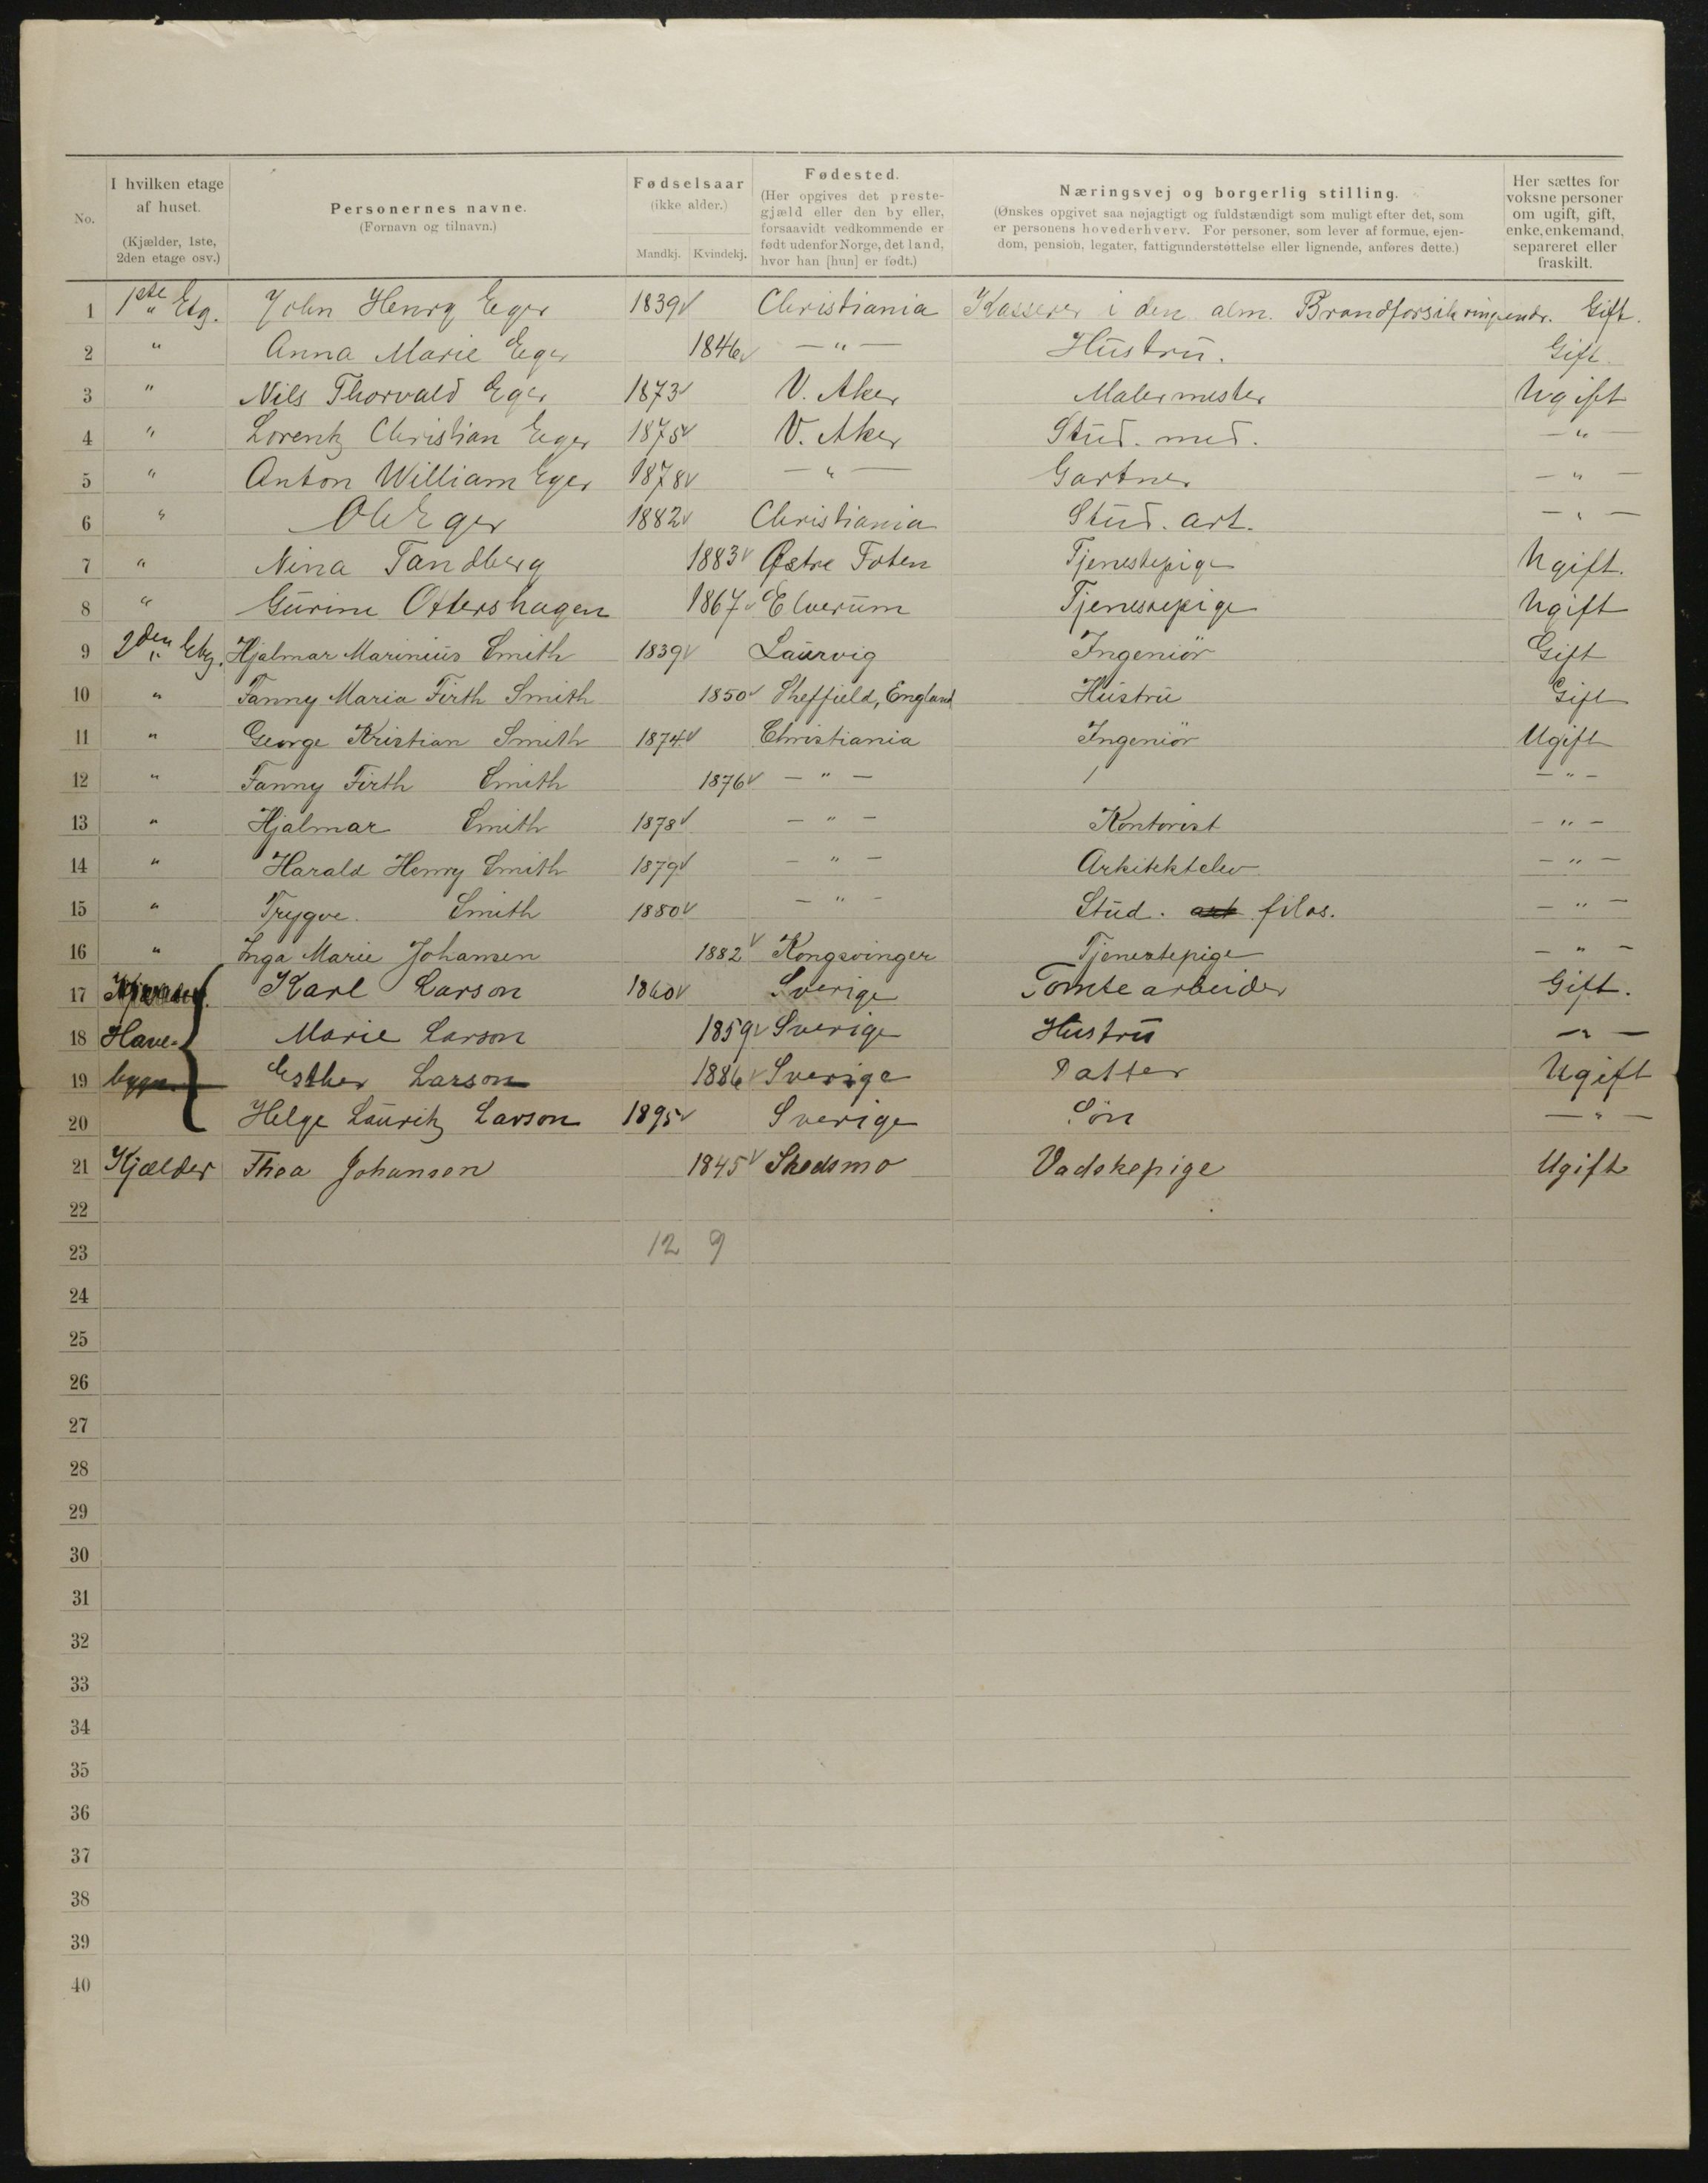 No. I hvilken etage af huset. (Kjælder, 1ste, 2den etage osv.) Personernes navne. (Fornavn og tilnavn.) Fødselsaar (ikke alder.) Mandkj. Kvindekj. Fødested. (Her opgives det prestegjæld eller den by eller, forsaavidt vedkommende er født udenfor Norge, det land, hvor han [hun] er født.) Næringsvej og borgerlig stilling. (Ønskes opgivet saa nøjagtigt og fuldstændigt som muligt efter det, som er personens hovederhverv. For personer, som lever af formue, ejendom, pension, legater, fattigunderstøttelse eller lignende, anføres dette.) Her sættes for voksne personer om ugift, gift, enke, enkemand, separeret eller fraskilt.
1 1ste Etg. John Henry Eger 1839 Christiania Kasserer i den alm. Brandforsikringsindr. Gift.
2 " Anna Marie Eger 1846 — " — Hustru. Gift
3 " Nils Thorvald Eger 1873 V. Aker Malermester Ugift
4 " Lorentz Christian Eger 1875 V. Aker Stud. med. — " —
5 " Anton William Eger 1878 — " — Gartner — " —
6 " Ole Eger 1882 Christiania Stud. art. — " —
7 " Nina Tandberg 1883 Østre Toten Tjenestepige Ugift.
8 " Gurine Ottershagen 1867 Elverum Tjenestepige Ugift
9 2den Etg. Hjalmar Marinius Smith 1839 Laurvig Ingeniör Gift
10 " Fanny Maria Firth Smith 1850 Sheffield, England Hustru Gift
11 " George Kristian Smith 1874 Christiania Ingeniör Ugift
12 " Fanny Firth Smith 1876 — " — / — " —
13 " Hjalmar Smith 1878 — " — Kontorist — " —
14 " Harald Henry Smith 1879 — " — Arkitektelev — " —
15 " Trygve. Smith 1880 — " — Stud. art filos. — " —
16 " Inga Marie Johansen 1882 Kongsvinger Tjenestepige — " —
17 Karl Larson 1860 Sverige Tomtearbeider Gift.
18 Have- Marie Larson 1859 Sverige Hustru — " —
19 bygn. Esther Larson 1886 Sverige Datter Ugift
20 Helge Lauritz Larson 1895 Sverige Sön — " —
21 Kjælder Thea Johansen 1845 Skedsmo Vadskepige Ugift
22
23 12 9
24
25
26
27
28
29
30
31
32
33
34
35
36
37
38
39
40